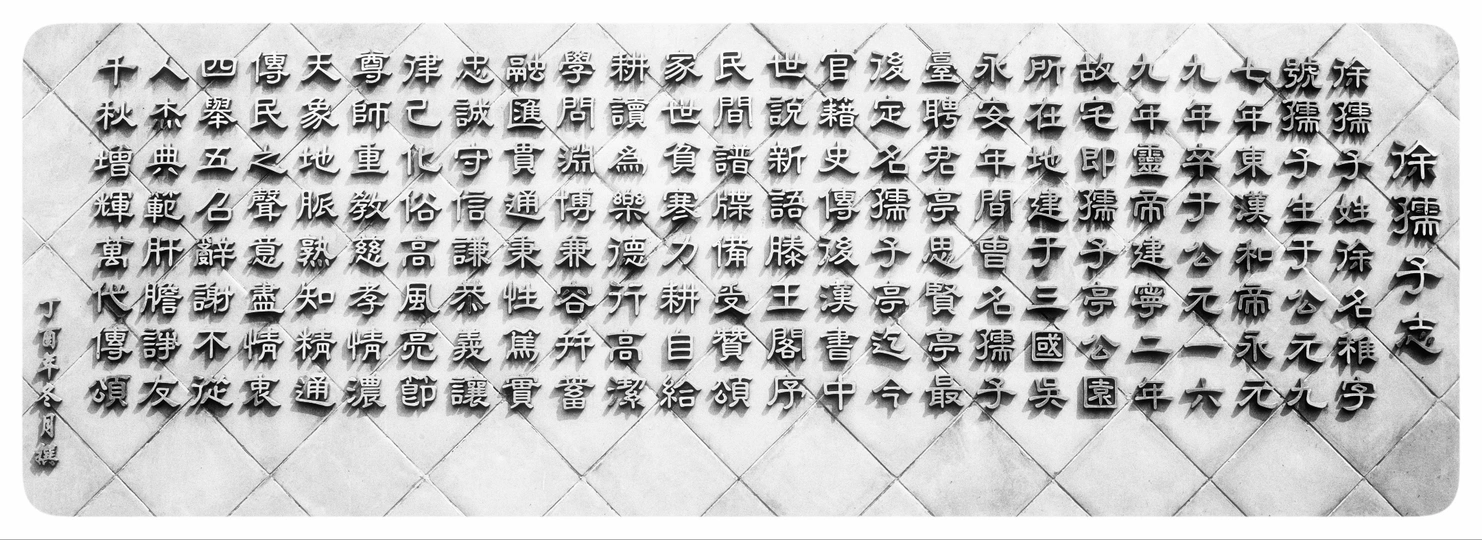 徐孺子志
徐孺子姓徐名稚字
號孺子生于公元九
七年東漢和帝永元
九年卒于公元一六
九年靈帝建寧二年
故宅即孺子亭公園
所在地建于三國吳
永安年間曾名孺子
臺聘君亭思賢亭最
後定名孺子亭迄今
官籍史傳後漢書中
世説新語滕王閣序
民間譜牒備受贊頌
家世負寒力耕自給
耕讀為樂德行高潔
學問淵博兼容并蓄
融匯貫通秉性篤實
忠誠守信謙恭義讓
律己化俗高風亮節
尊師重教慈孝情濃
天象地脈熟知精通
傳民之聲意盡情衷
四舉五召辭謝不從
人杰典範肝膽諍友
千秋增輝萬代傳頌
丁酉年冬月撰